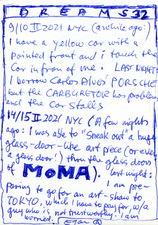 DREAMS 32
9/10 II 2021 NYC (a while ago:
I have a yellow car with a
pointed front and i touch the
car in front of me. LAST NIGHT:
I borrow Carlos PORSCHE
but the CARBURETOR has problems
and the car stalls
14/15 II 2021 NYC (A few nights
ago: I was able to "sneak out" a huge
glass-door-like art piece (or even
a glass door!) thru the glass doors
of MoMA). last night:
I am pre-
paring to go for an art-show to
TOKYO, which i have to pay for w/a
guy who is not trustworthy. i am
worried